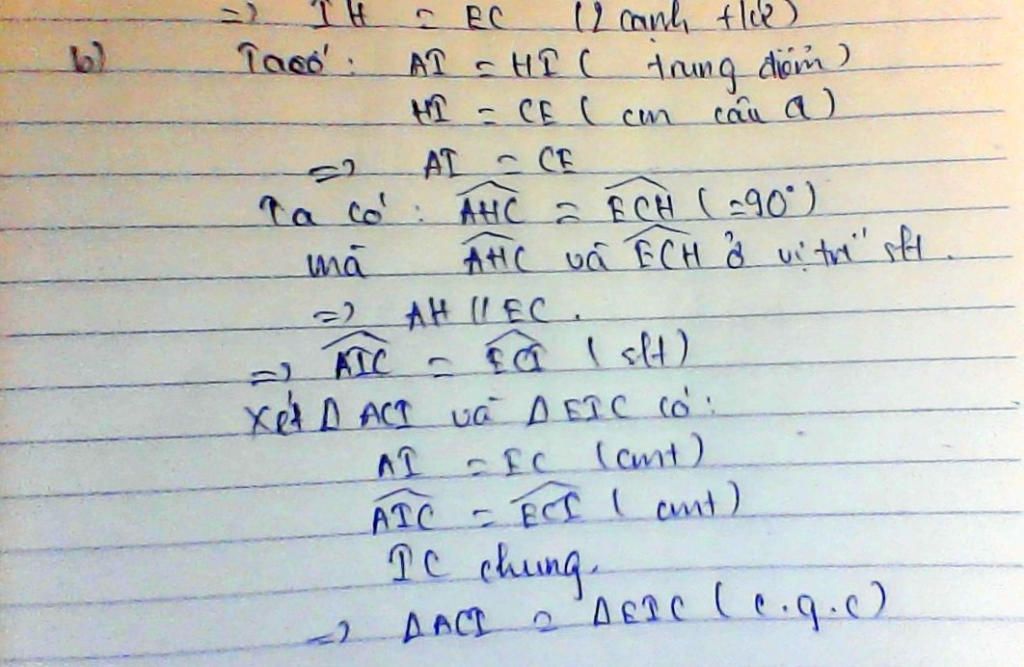 => IH = EC (2 cạnh t/ứ)
b) Ta có: AI = HI ( trung điểm)
HI = CE ( cm câu a)
=> AI = CE
Ta có: AHC = ECH (=90°)
mà AHC và ECH ở vị trí slt.
=> AH // EC.
=> AIC = ECI ( slt)
Xét Δ ACI và Δ EIC có:
AI = EC (cmt)
AIC = ECI ( cmt)
IC chung.
=> ΔACI = ΔEIC ( c.g.c)